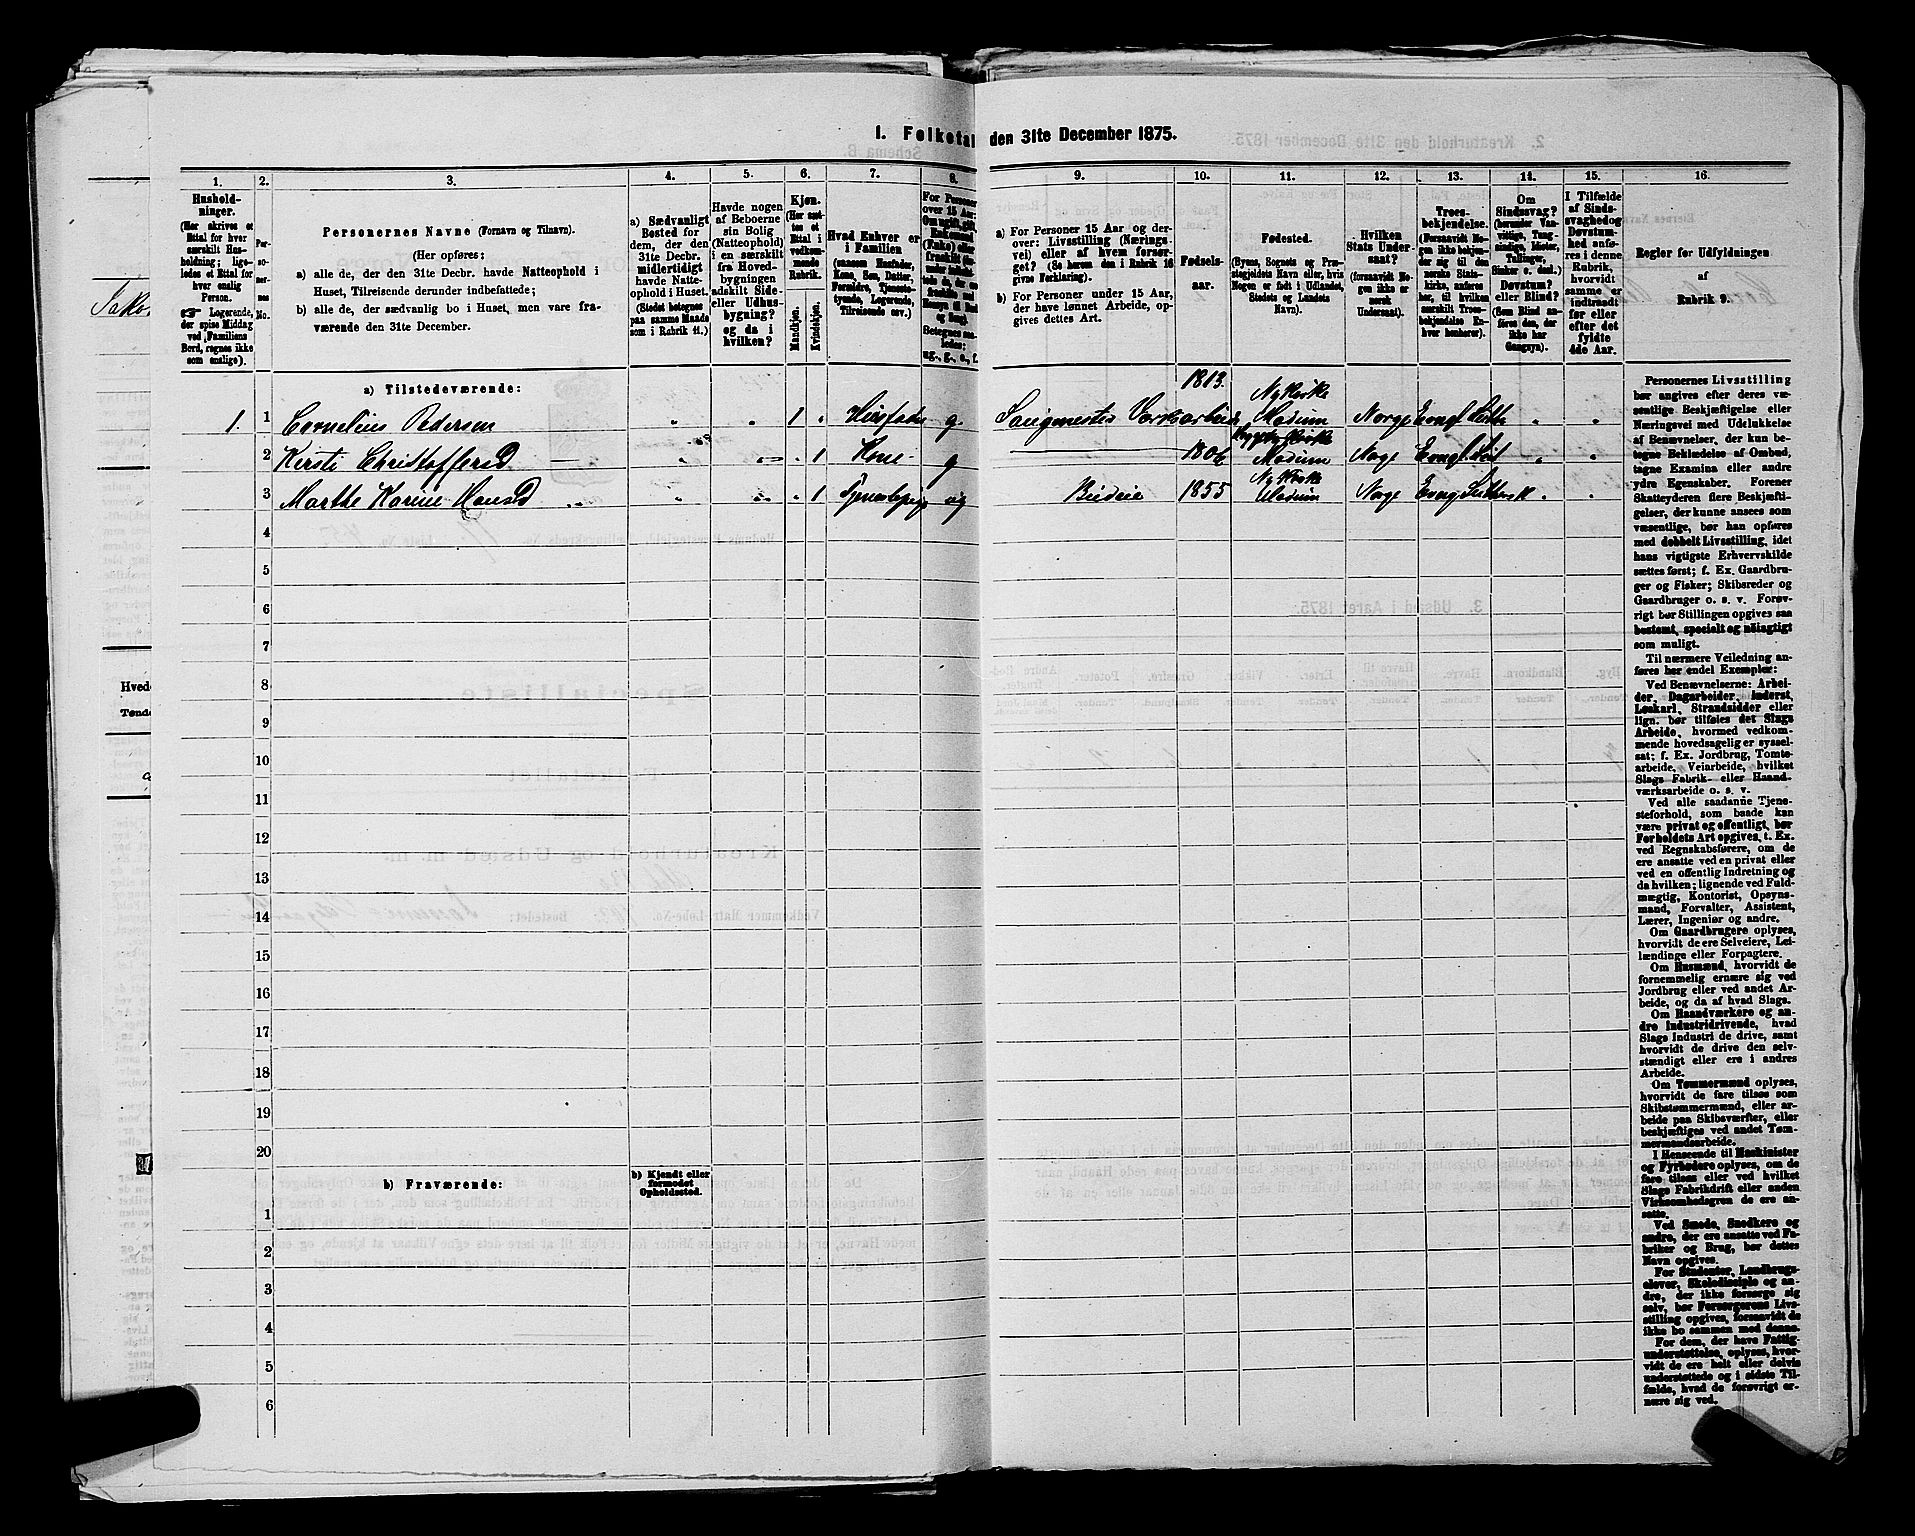 1. Folketal den 31te December 1875.
1. 2. 3. 4. 5. 6. 7. 8. 9. 10. 11. 12. 13. 14. 15. 16.
Hushold-
ninger.
(Her skrives et
Ettal for hver
særskilt Hus-
holdning; lige-
ledes et Ettal for
hver enslig
Person.
Logerende,
der spise Middag
ved Familiens
Bord, regnes ikke
som enslige).
Per-
so-
ner-
nes
No.
Personernes Navne (Fornavn og Tilnavn).
(Her opføres:
a) alle de, der den 31te Decbr. havde Natteophold i
Huset, Tilreisende derunder indbefattede;
b) alle de, der sædvanlig bo i Huset, men vare fra-
værende den 31te December.
a) Sædvanligt
Bosted for
dem, der den
31te Decbr.
midlertidigt
havde Natte-
ophold i Huset.
(Stedet betegnes
paa samme Maade
som i Rubrik 11.)
Havde nogen
af Beboerne
sin Bolig
(Natteophold)
i en særskilt
fra Hoved-
bygningen
adskilt Side-
eller Udhus-
bygning?
og da i
hvilken?
Kjøn.
(Her sæt-
tes et
Ettal i
vedkom-
mende
Rubrik.
Mandkjøn.
Kvindekjøn.
Hvad Enhver er
i Familien
(saasom Husfader,
Kone, Søn, Datter,
Forældre, Tjeneste-
tyende, Logerende,
Tilreisende osv.)
For Personer
over 15 Aar:
Betegnes saa-
ledes:
ug., g., e., f.
a) For Personer 15 Aar og der-
over: Livsstilling (Nærings-
vei) eller af hvem forsør-
get? (Se herom den i Rubrik 16
givne Forklaring).
b) For Personer under 15 Aar,
der have lønnet Arbeide, op-
gives dettes Art.
Fødsels-
aar.
Fødested.
(Byens, Sognets og Præ-
stegjeldets Navn eller, hvis
Nogen er født i Udlandet,
Stedets og Landets
Navn).
Hvilken
Stats Under-
saat?
(forsaavidt No-
gen ikke er
norsk
Undersaat).
Troes-
bekjendelse.
(Forsaavidt No-
gen ikke bekjen-
der sig til den
norske Stats-
kirke, anføres
her, til hvilken
særskilt Troes-
bekjendelse En-
hver henhører).
Om
Sindssvag?
(herunder Van-
vittige, Tung-
sindige, Idioter,
Tullinger,
Sinker o. desl.)
Døvstum?
eller Blind?
(Som Blind an-
føres den, der
ikke har
Gangsyn).
I Tilfælde
af Sinds-
svaghed og
Døvstum-
hed anfø-
res i denne
Rubrik,
hvorvidt
samme er
indtraadt
før eller
efter det
fyldte
4de Aar.
Regler for Udfyldningen
af
Rubrik 9.
a) Tilstedeværende:
1. 1 Cornelius Pedersen " " 1 " Husfader g. 1813. Nykirke Modum Norge Evngl Luth " "
2 Kirsti Christoffersd " " " 1 Kone g 1806 Modum Norge Evngl Lut " "
3 Marthe Karine Hansd " " " 1 Tjenestepige ug Budeie 1855 Nykirke Modum Norge Evngl Luthersk " "
4
5
6
7
8
9
10
11
12
13
14
15
16
17
18
19
20
b) Fraværende:
b) Kjendt eller
formodet
Opholdssted.
1
2
3
4
5
6
Personernes Livsstilling
bør angives efter deres væ-
sentlige Beskjæftigelse eller
Næringsvei med Udelukkelse
af Benævnelser, der kun be-
tegne Beklædelse af Ombud,
tagne Examina eller andre
ydre Egenskaber. Forener
Skatteyderen flere Beskjæfti-
gelser, der kunne ansees som
væsentlige, bør han opføres
med dobbelt Livsstilling, idet
hans vigtigste Erhvervskilde
sættes først; f. Ex. Gaardbru-
ger og Fisker; Skibsreder og
Gaardbruger o. s. v. Forøv-
rigt bør Stillingen opgives saa
bestemt, specielt og nöiagtigt
som muligt.
Til nærmere Veiledning an-
føres her endel Exempler:
Ved Benævnelserne: Arbei-
der, Dagarbeider, Inderst,
Løskarl, Strandsidder eller
lign. bør tilføies det Slags
Arbeide, hvormed vedkom-
mende hovedsagelig er syssel-
sat; f. Ex. Jordbrug, Tomte-
arbeide, Veiarbeide, hvilket
Slags Fabrik- eller Haand-
værksarbeide o. s. v.
Ved alle saadanne Tjene-
steforhold, som baade kan
være privat og offentligt, bør
Forholdets Art opgives, t. Ex.
ved Regnskabsførere, om de
ere ansatte ved en privat eller
ved en offentlig Indretning og
da hvilken; lignende ved Fuld-
mægtig, Kontorist, Opsyns-
mand, Forvalter, Assistent,
Lærer, Ingeniør og andre.
Om Gaardbrugere oplyses,
hvorvidt de ere Selveiere, Lei-
lændinge eller Forpagtere.
Om Husmænd, hvorvidt de
fornemmelig ernære sig ved
Jordbrug eller ved andet Ar-
beide, og da af hvad Slags.
Om Haandværkere og an-
dre Industridrivende, hvad
Slags Industri de drive, samt
hvorvidt de drive den selv-
stændigt eller ere i andres
Arbeide.
Om Tømmermænd oplyses,
hvorvidt de fare tilsøs som
Skibstømmermænd, eller ar-
beide paa Skibsværfter, eller
beskjæftiges ved andet Tøm-
mermandsarbeide.
I Henseende til Maskinister
og Fyrbødere oplyses, om de
fare tilsøs eller ved hvilket
Slags Fabrikdrift eller anden
Virksomhedsgren de ere an-
satte.
Ved Smede, Snedkere og
andre, der ere ansatte ved Fa-
briker og Brug, bør dettes
Navn opgives.
For Studenter, Landbrugs-
elever, Skoledisciple og an-
dre, der ikke forsørge sig
selv, bør Forsørgerens Livs-
stilling opgives, forsaavidt de
ikke bo sammen med denne.
For dem, der have Fattig-
understøttelse, oplyses, hvor-
vidt de ere helt eller delvis
understøttede og i sidste Til-
fælde, hvad de forøvrigt er-
nære sig ved.